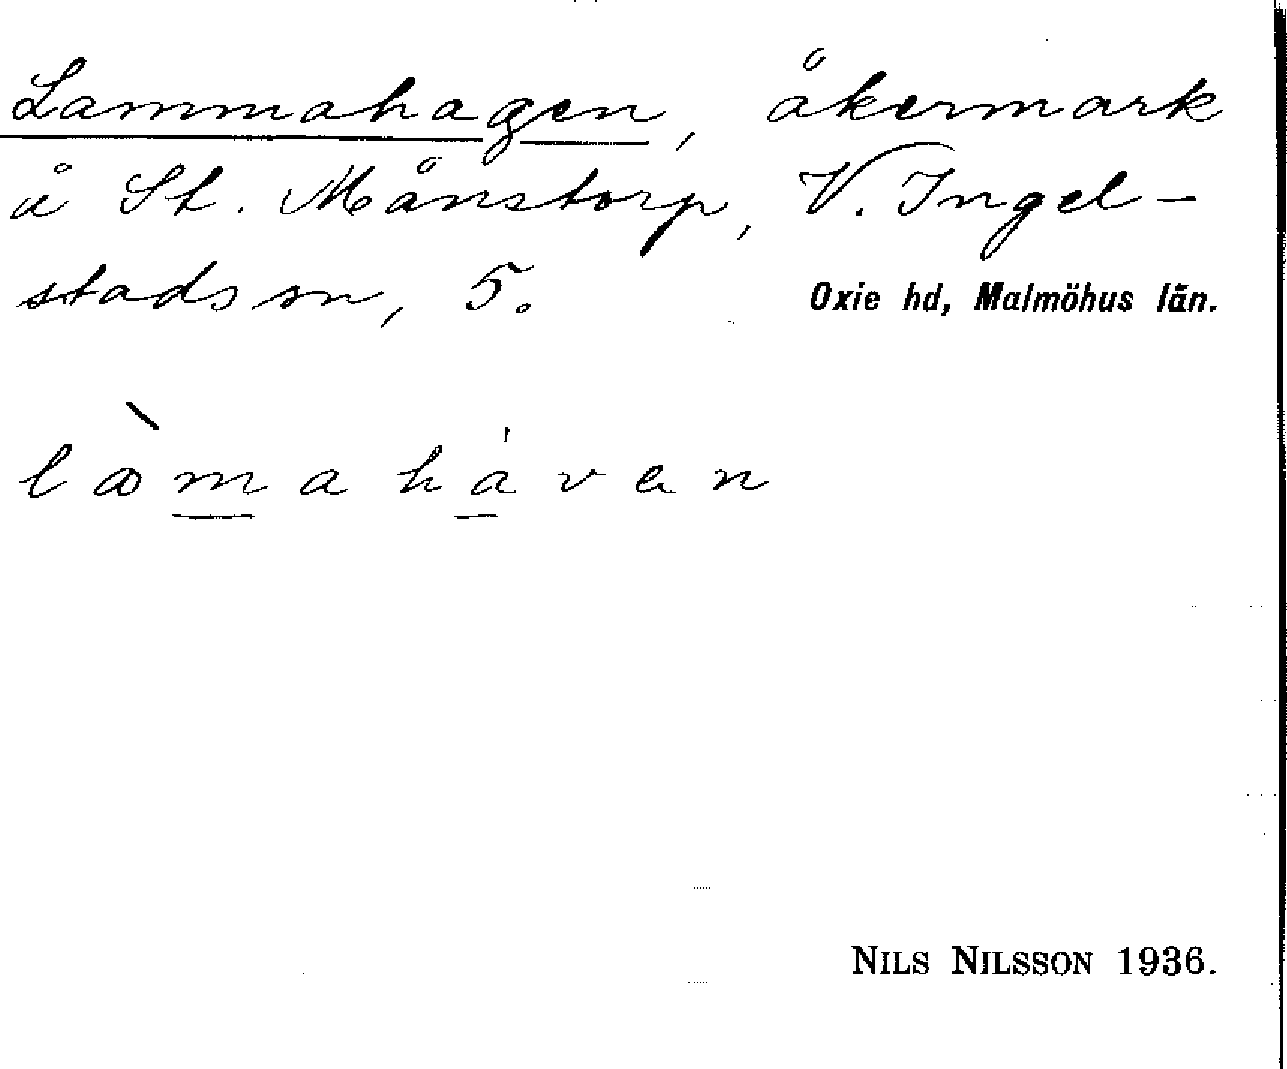 Lammahagen, åkermark
å St. Månstorp, V. Ingel-
stads sn, 5.
Oxie hd, Malmöhus län.
làmahávan
NILS NILSSON 1936.